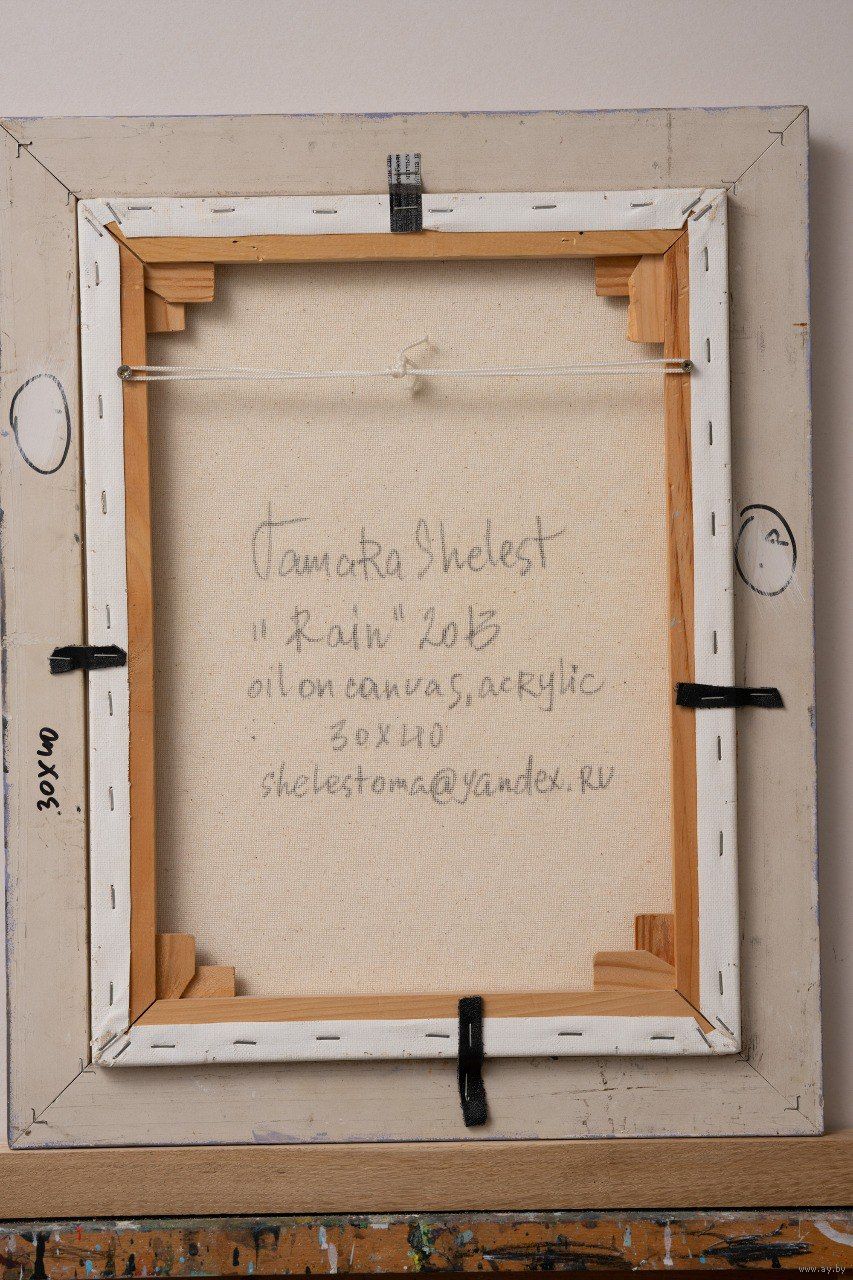 Tamara Shelest
"Rain" 2013
oil on canvas, acrylic
30x40
shelestoma@yandex.ru
30x40
P
www.ay.by